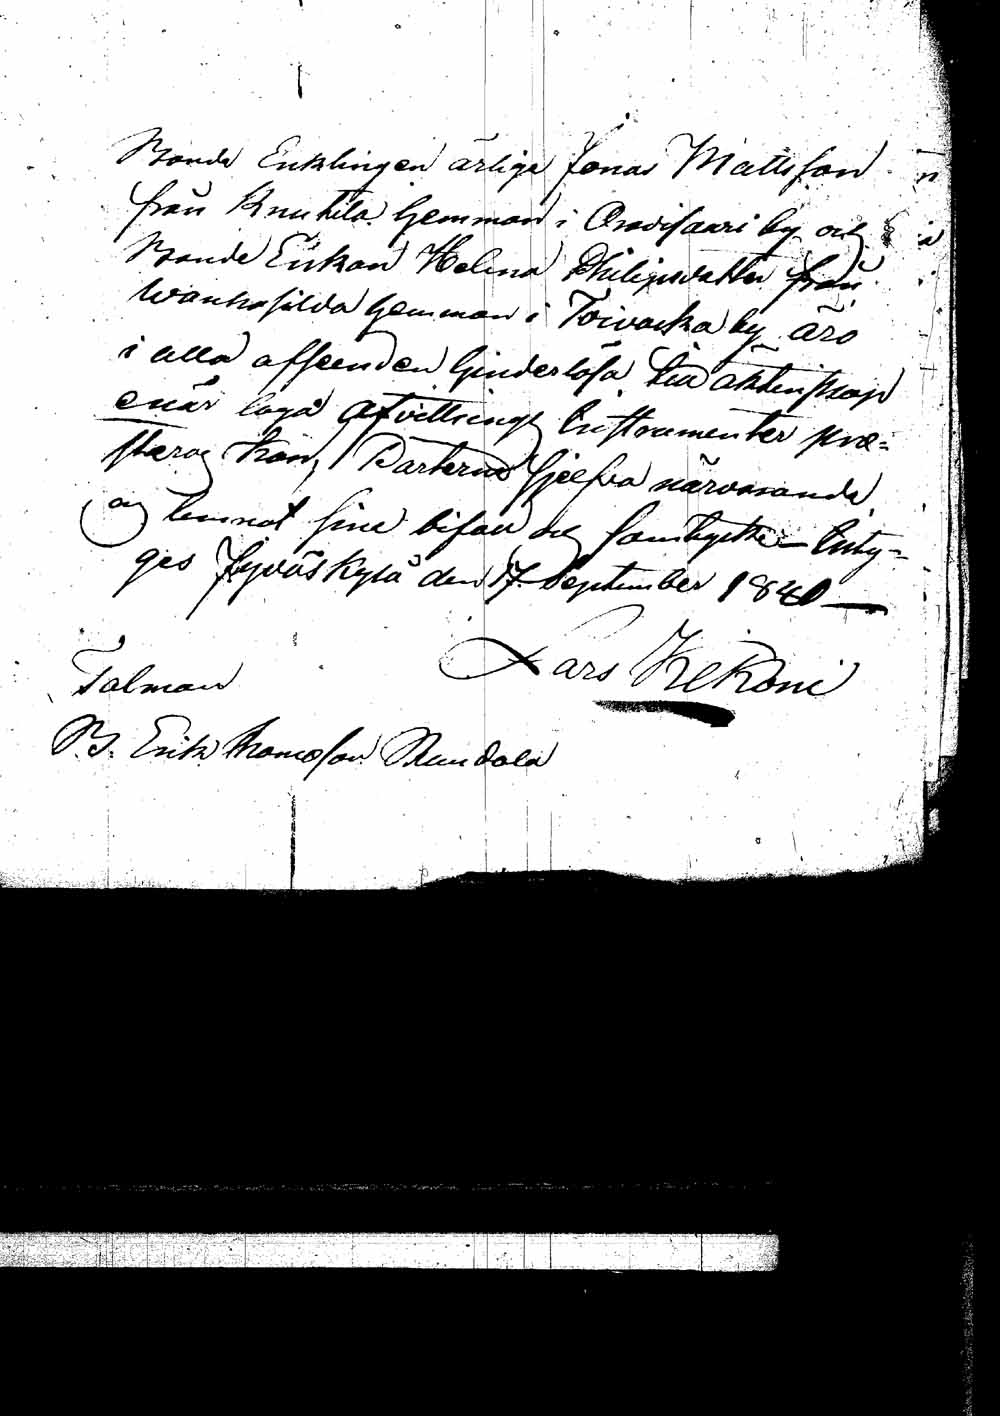 Bonde Enklingen ärlige Jonas Mattsson
från Knutila hemman i Oravisaari by och
Bonde Enkan Helena Philipsdotter från
Wankasilda hemman i Toivacka by äro
i alla afseenden hinderlösa till äktenskap
enär laga afvittrings Instrumenter præ-
sterog kan, Parterne sjelfva närvarande
og lemnat sine bifall og samtycke – Inty-
ges Jyväskylä den 17 September 1840 —
Lars Kekoni
Talman
B. Erik Thomasson